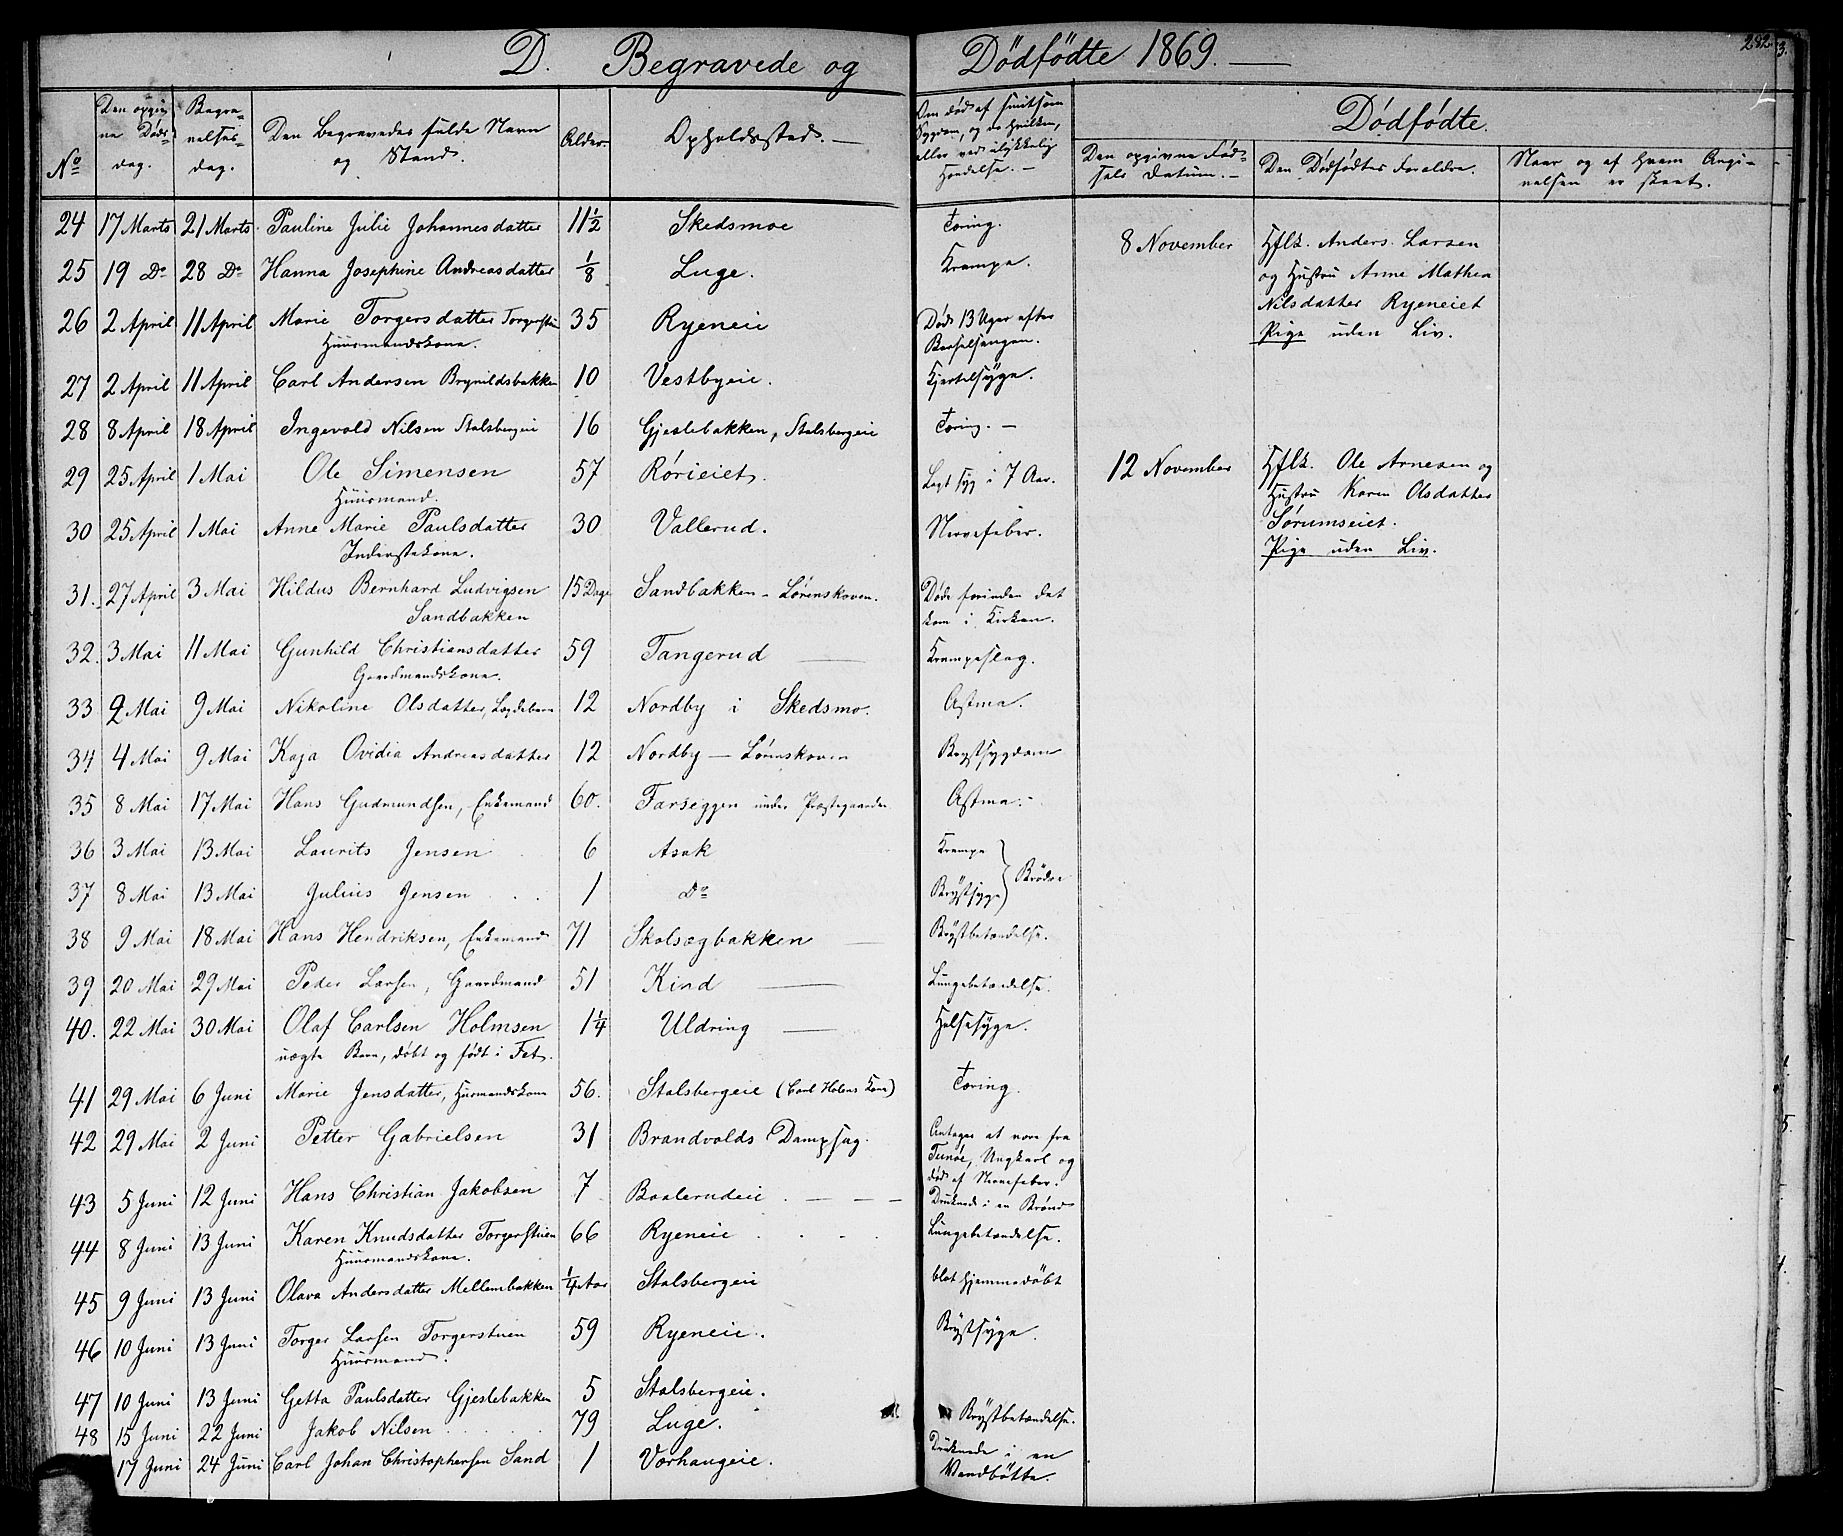 D. Begravede og Dødfødte 1869. 282
No
Den opgivne Døds-dag.
Begravelses-dag.
Den Begravedes fulde Navn og Stand.
Alder.
Opholdssted.
Om død af smitsom Sygdom, og da hvilken, eller ved ulykkelig Hændelse.
Dødfødte.
Den opgivne Fødsels Datum.
Den Dødfødtes Forældre.
Naar og af hvem Angivelsen er skeet.
24 17 Marts 21 Marts Pauline Julie Johannesdatter 11 1/2 Skedsmoe Tæring.
25 19 Do 28 Do Hanna Josephine Andreasdatter 1/8 Luge. Krampe.
26 2 April 11 April Marie Torgersdatter Torgerstuen 35 Ryeneie Døde 13 Uger efter
Huusmandskone. Barselsengen.
27 2 April 11 April Carl Andersen Brynildsbakken 10 Vestbyeie. Kjertelsyge.
28 8 April 18 April Ingevald Nilsen Stalsbergeie 16 Gjeslebakken, Stalsbergeie Tæring.
29 25 April 1 Mai Ole Simensen 57 Rørieiet. Lagt syg i 7 Aar.
Huusmand.
30 25 April 1 Mai Anne Marie Paulsdatter 30 Vallerud. Nervefeber.
Inderstekone.
31. 27 April 3 Mai Hildus Bernhard Ludvigsen 15 Dage Sandbakken - Lørenskoven. Døde forinden det
Sandbakken kom i Kirken.
32. 3 Mai 11 Mai Gunhild Christiansdatter 59 Tangerud Krampeslag.
Gaardmandskone.
33 2 Mai 9 Mai Nikoline Olsdatter, Lægdebarn 12 Nordby i Skedsmo. Astma.
34 4 Mai 9 Mai Kaja Ovidia Andreasdatter 12 Nordby - Lørenskoven Brystsygdom
35 8 Mai 17 Mai Hans Gudmundsen, Enkemand 60. Farseggen under Præstegaarden Astma.
36 3 Mai 13 Mai Laurits Jensen 6 Asak Krampe
37 8 Mai 13 Mai Julius Jensen 1 Do Brystsyge } Brødre
38 9 Mai 18 Mai Hans Hendriksen, Enkemand 71 Skolsægbakken Brystbetændelse.
39 20 Mai 29 Mai Peder Larsen, Gaardmand 51 Kind Lungebetændelse.
40. 22 Mai 30 Mai Olaf Carlsen Holmsen 1 1/4 Uldring Halsesyge.
uægte Barn, døbt og født i Fet.
41 29 Mai 6 Juni Marie Jensdatter, Husmandskone 56. Stalsbergeie (Carl Holens Kone) Tæring.
42 29 Mai 2 Juni Petter Gabrielsen 31 Brandvolds Dampsag. Antages at være fra
Ungkarl og
død af Nervefeber.
43 5 Juni 12 Juni Hans Christian Jakobsen 7 Baalerudeie Druknede i en Brønd
44 8 Juni 13 Juni Karen Knudsdatter Torgerstuen 66 Ryeneie Lungebetændelse.
Huusmandskone.
45 9 Juni 13 Juni Olava Andersdatter Mellembakken 1/4 Aar Stalsbergeie blot hjemmedøbt
46 10 Juni 13 Juni Torger Larsen Torgerstuen 59 Ryeneie. Brystsyge.
Huusmand.
47 10 Juni 13 Juni Getta Paulsdatter Gjeslebakken 5 Stalsbergeie.
48 15 Juni 22 Juni Jakob Nilsen 79 Luge. Brystbetændelse.
17 Juni 24 Juni Carl Johan Christophersen Sand 1 Vorhaugeie. Druknede i en
Vandbøtte.
8 November Hflk. Anders Larsen
og Hustru Anne Mathea
Nilsdatter Ryeneiet
Pige uden Liv.
12 November Hflk. Ole Arnesen og
Hustru Karen Olsdatter
Sørumseiet.
Pige uden Liv.